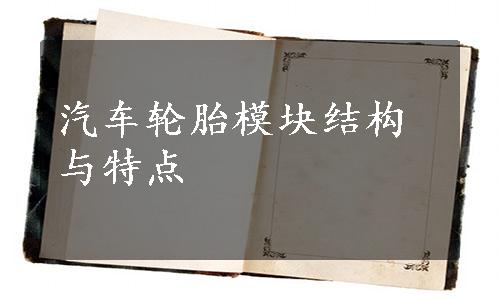 汽车轮胎模块结构
与特点